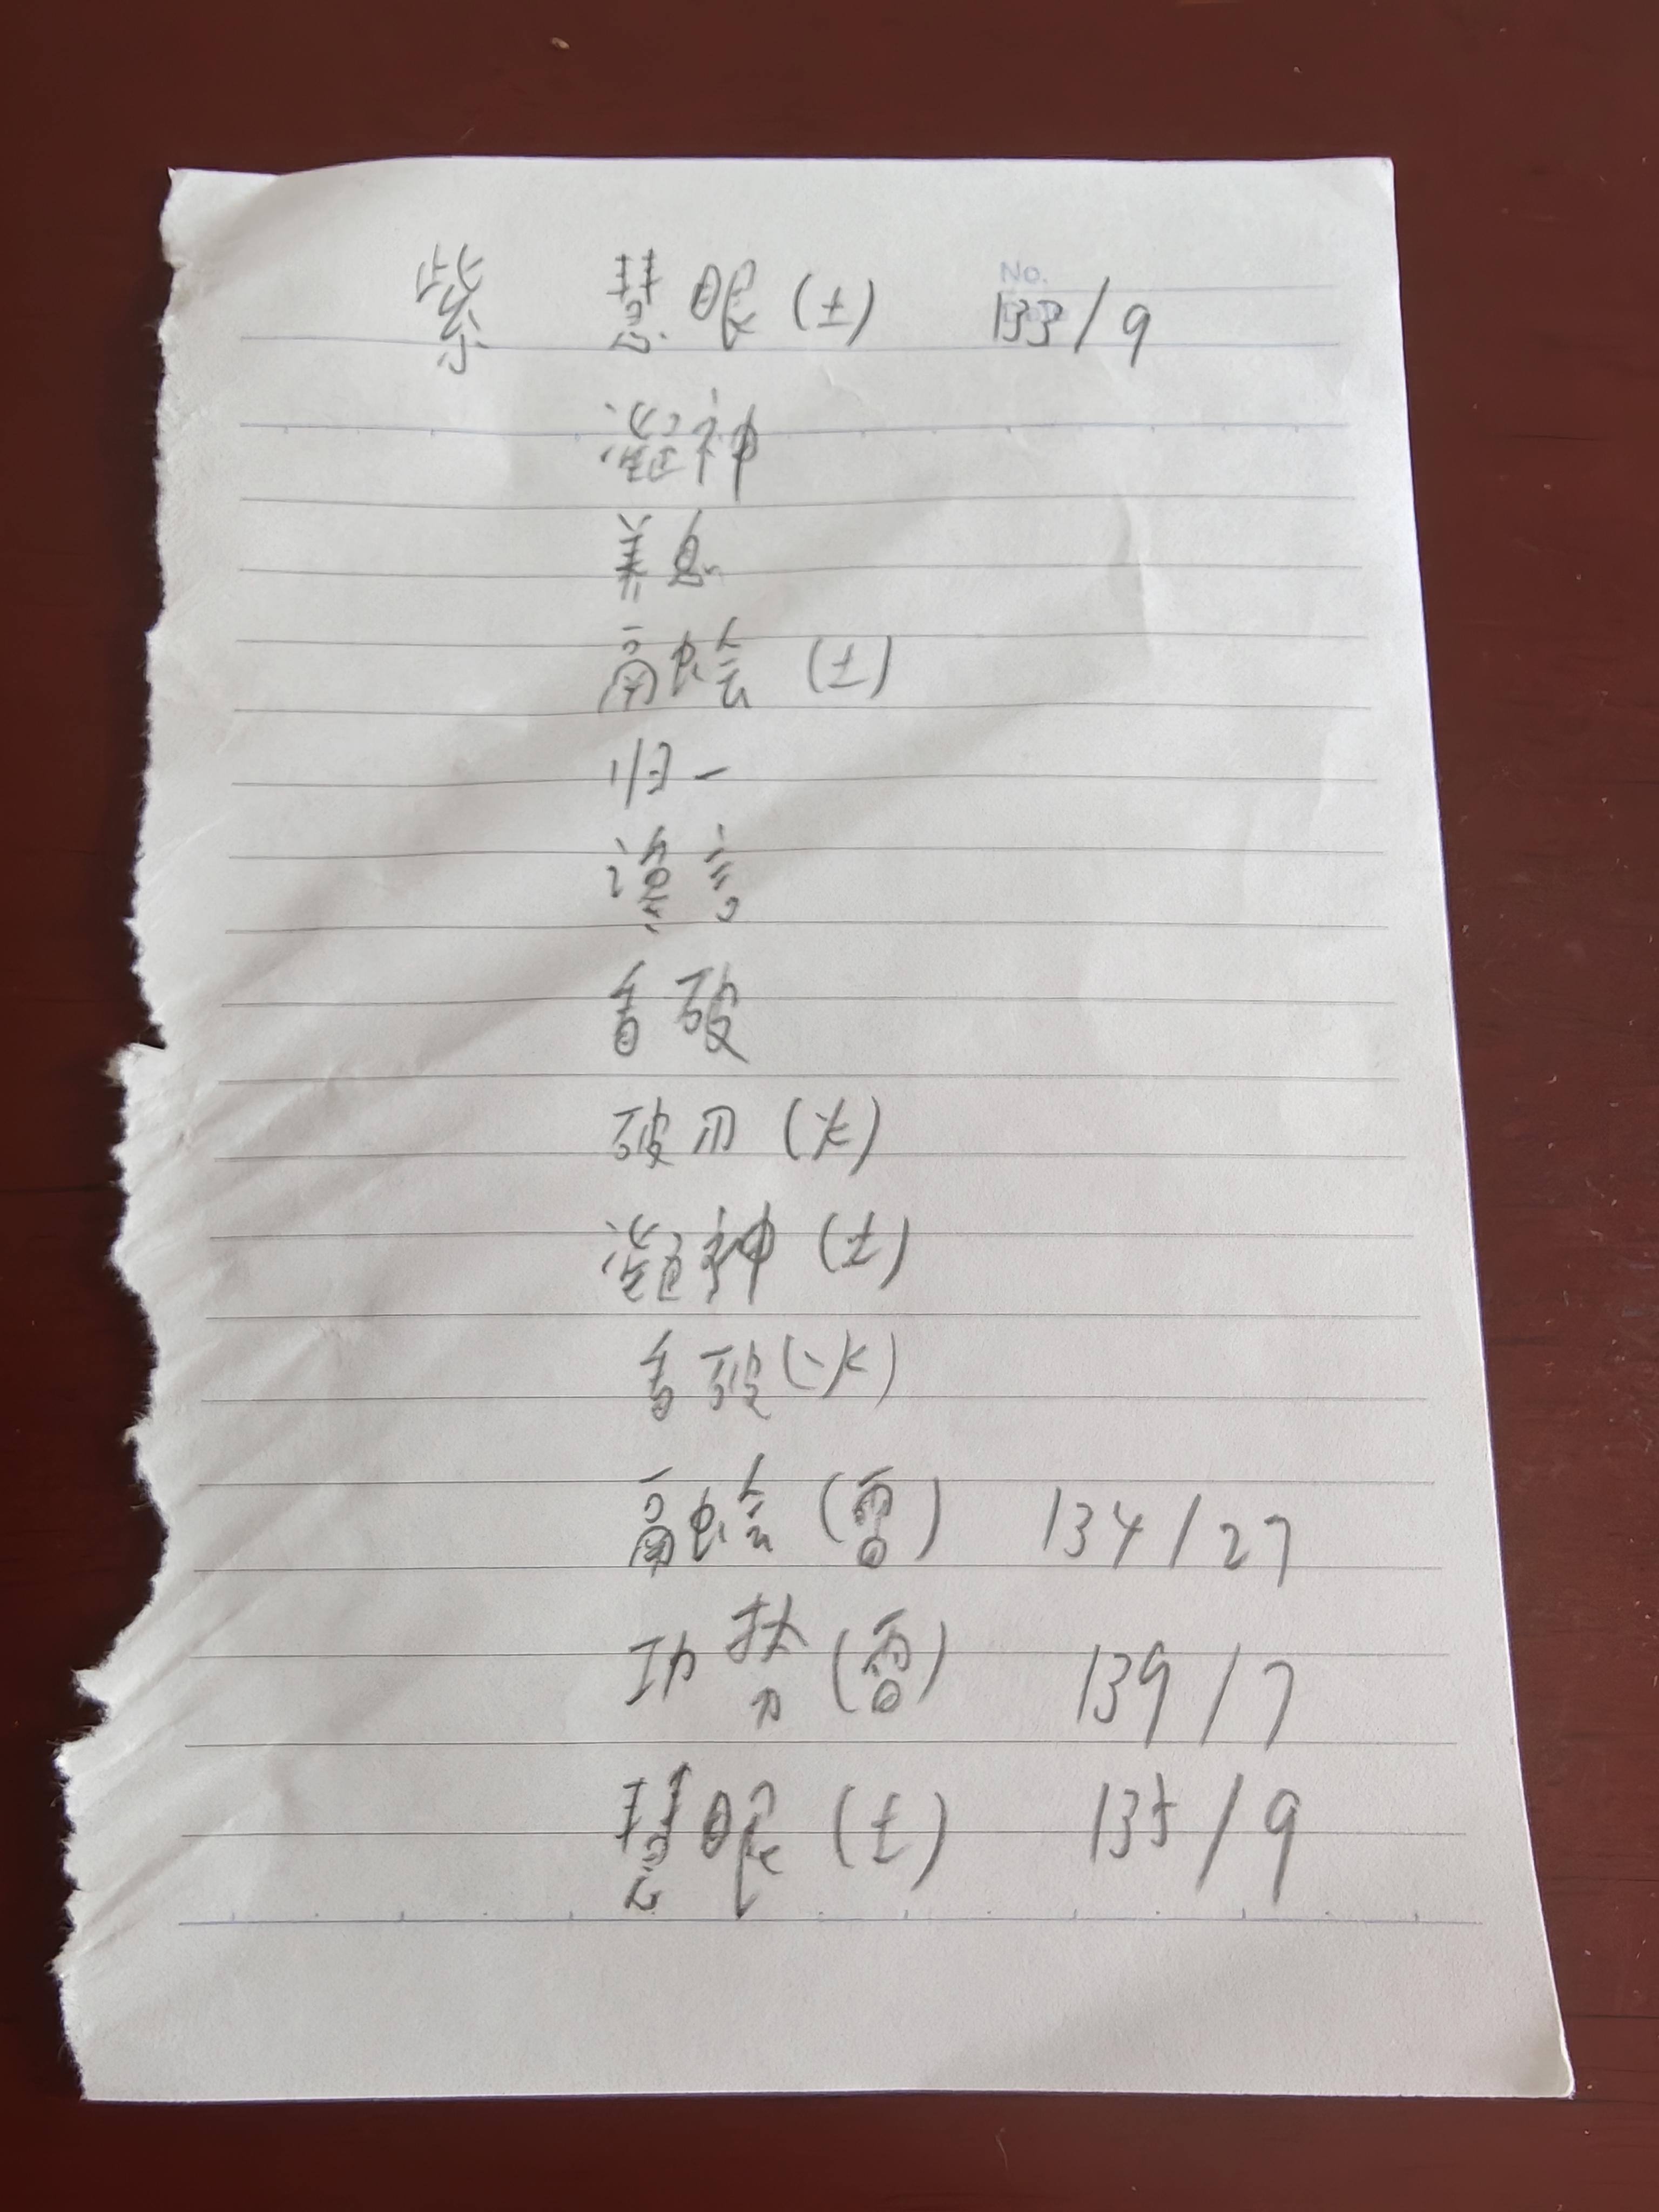 紫 慧眼(土) 133/9
No.
凝神
养息
融会(土)
归一
舌破
破刃(火)
凝神(土)
舌破(火)
融会(雷) 134/27
功势(雷) 139/7
慧眼(土) 135/9